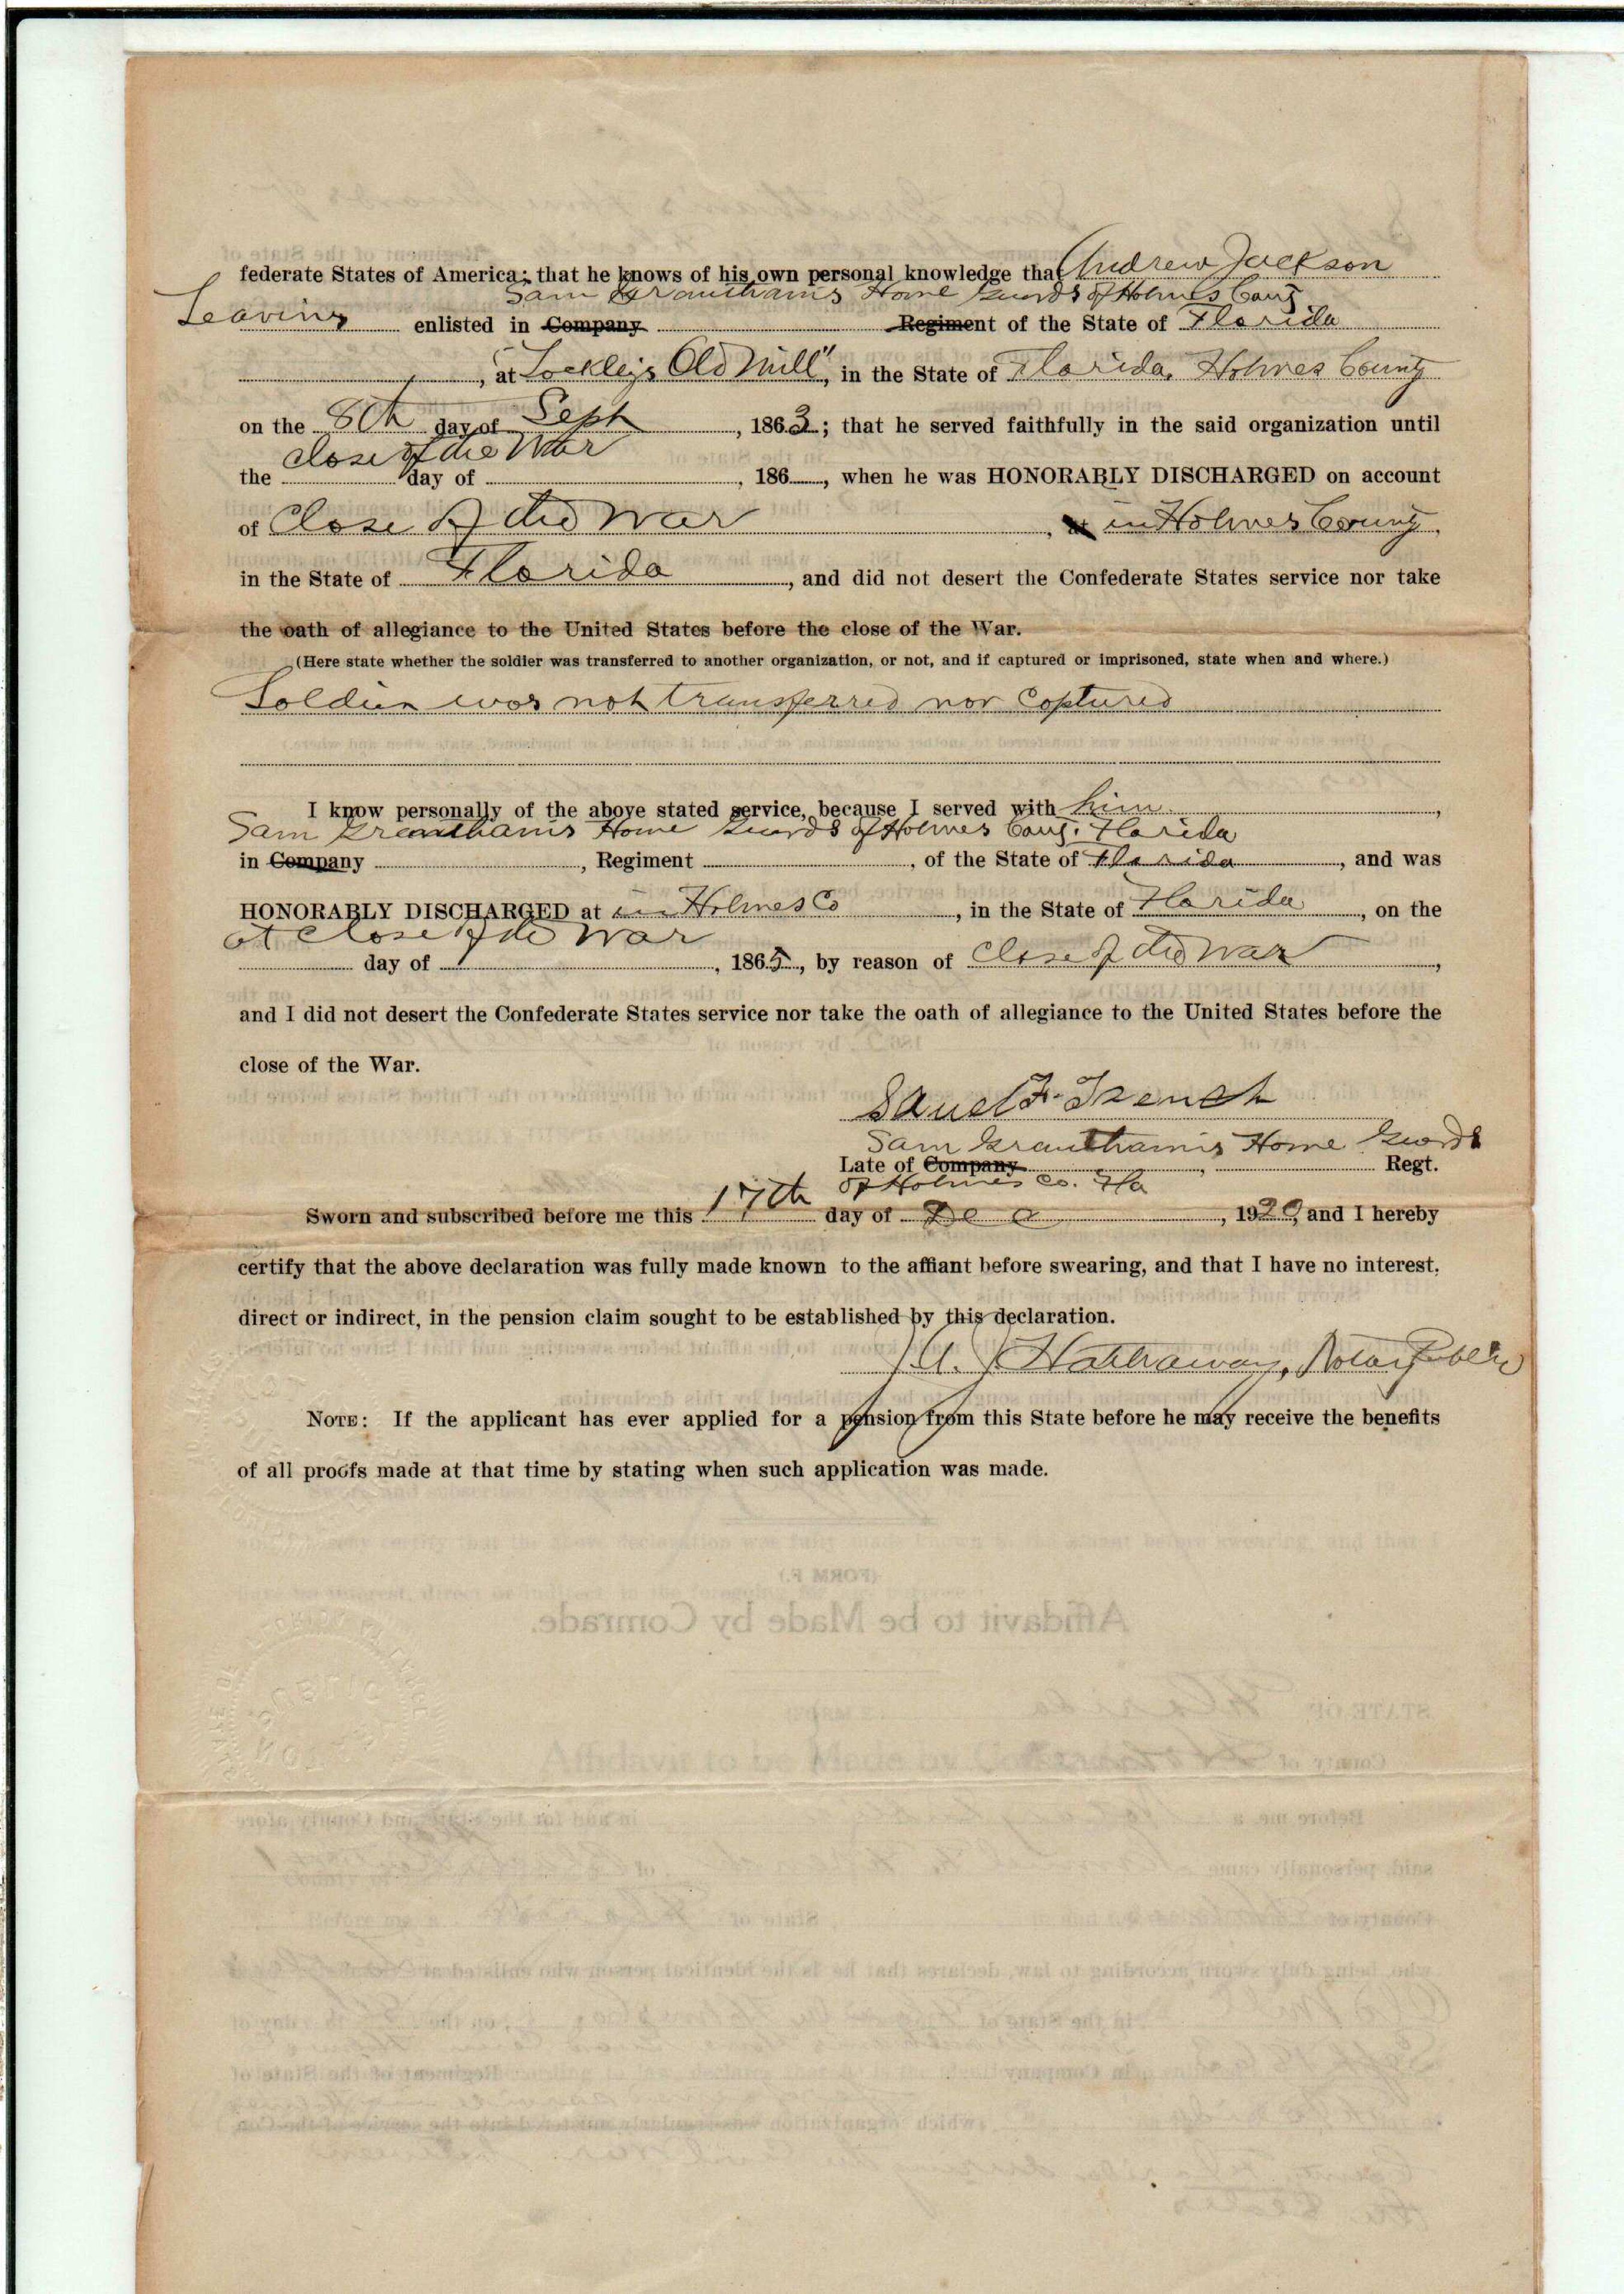 federate States of America; that he knows of his own personal knowledge that Andrew Jackson
Sam Grantham's Home Guards of Holmes County
Leavins enlisted in Company Regiment of the State of Florida
, at "Lockley's Old Mill", in the State of Florida, Holmes County
on the 8th day of Sept, 1863; that he served faithfully in the said organization until
close of the War
the day of , 186 , when he was HONORABLY DISCHARGED on account
of Close of the War, at in Holmes County,
in the State of Florida, and did not desert the Confederate States service nor take
the oath of allegiance to the United States before the close of the War.
(Here state whether the soldier was transferred to another organization, or not, and if captured or imprisoned, state when and where.)
Soldier was not transferred nor captured
I know personally of the above stated service, because I served with him,
Sam Grantham's Home Guards of Holmes County, Florida
in Company , Regiment , of the State of Florida, and was
HONORABLY DISCHARGED at in Holmes Co, in the State of Florida, on the
at close of the War
day of , 1865, by reason of Close of the War,
and I did not desert the Confederate States service nor take the oath of allegiance to the United States before the
close of the War.
F. French
Sam Grantham's Home Guards
Late of Company , Regt.
of Holmes Co. Fla
Sworn and subscribed before me this 17th day of Dec, 1920, and I hereby
certify that the above declaration was fully made known to the affiant before swearing, and that I have no interest,
direct or indirect, in the pension claim sought to be established by this declaration.
Hathaway, Notary Public
NOTE: If the applicant has ever applied for a pension from this State before he may receive the benefits
of all proofs made at that time by stating when such application was made.